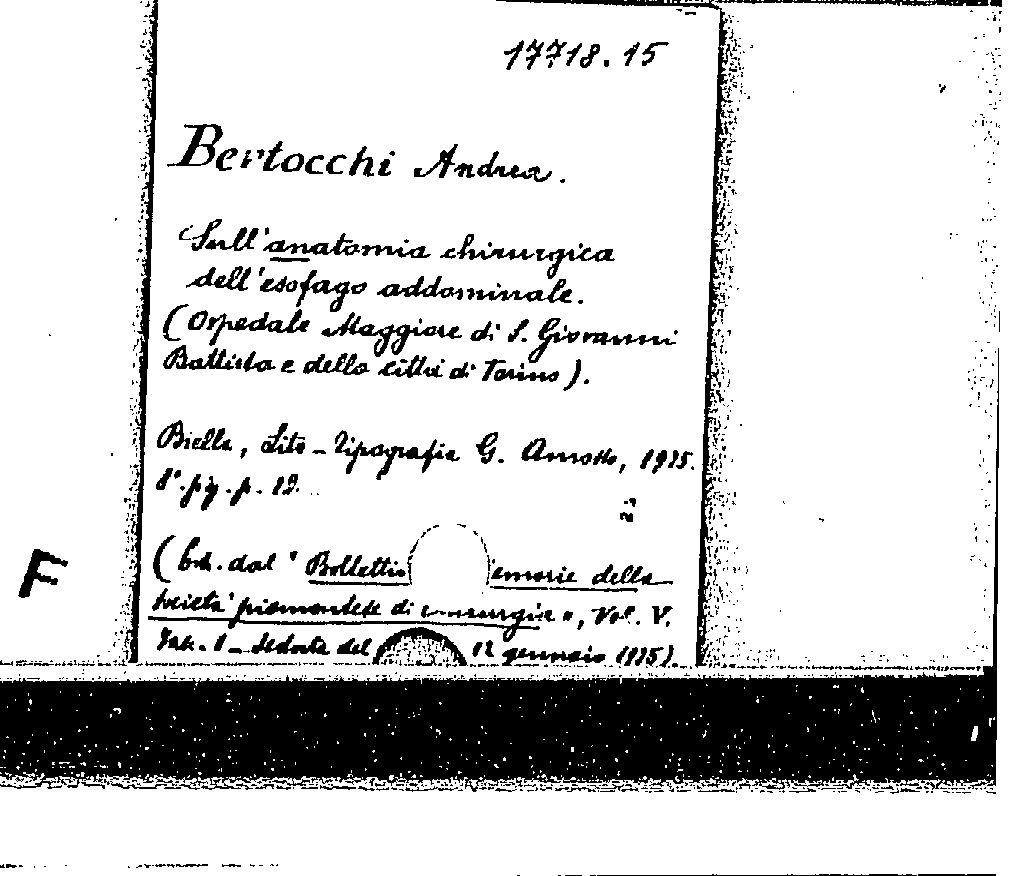 17718.15
Bertocchi Andrea.
Sull'anatomia chirurgica
dell'esofago addominale.
(Ospedale Maggiore di S. Giovanni
Battista e della città di Torino).
Biella, Lito-Tipografia G. Amosso, 1935.
8°. p. 19.
(Estr. dal "Bollettin emorie della
Società piemontese di chirurgia", Vol. V.
Fasc. 1 - Seduta del 12 gennaio 1935)
F